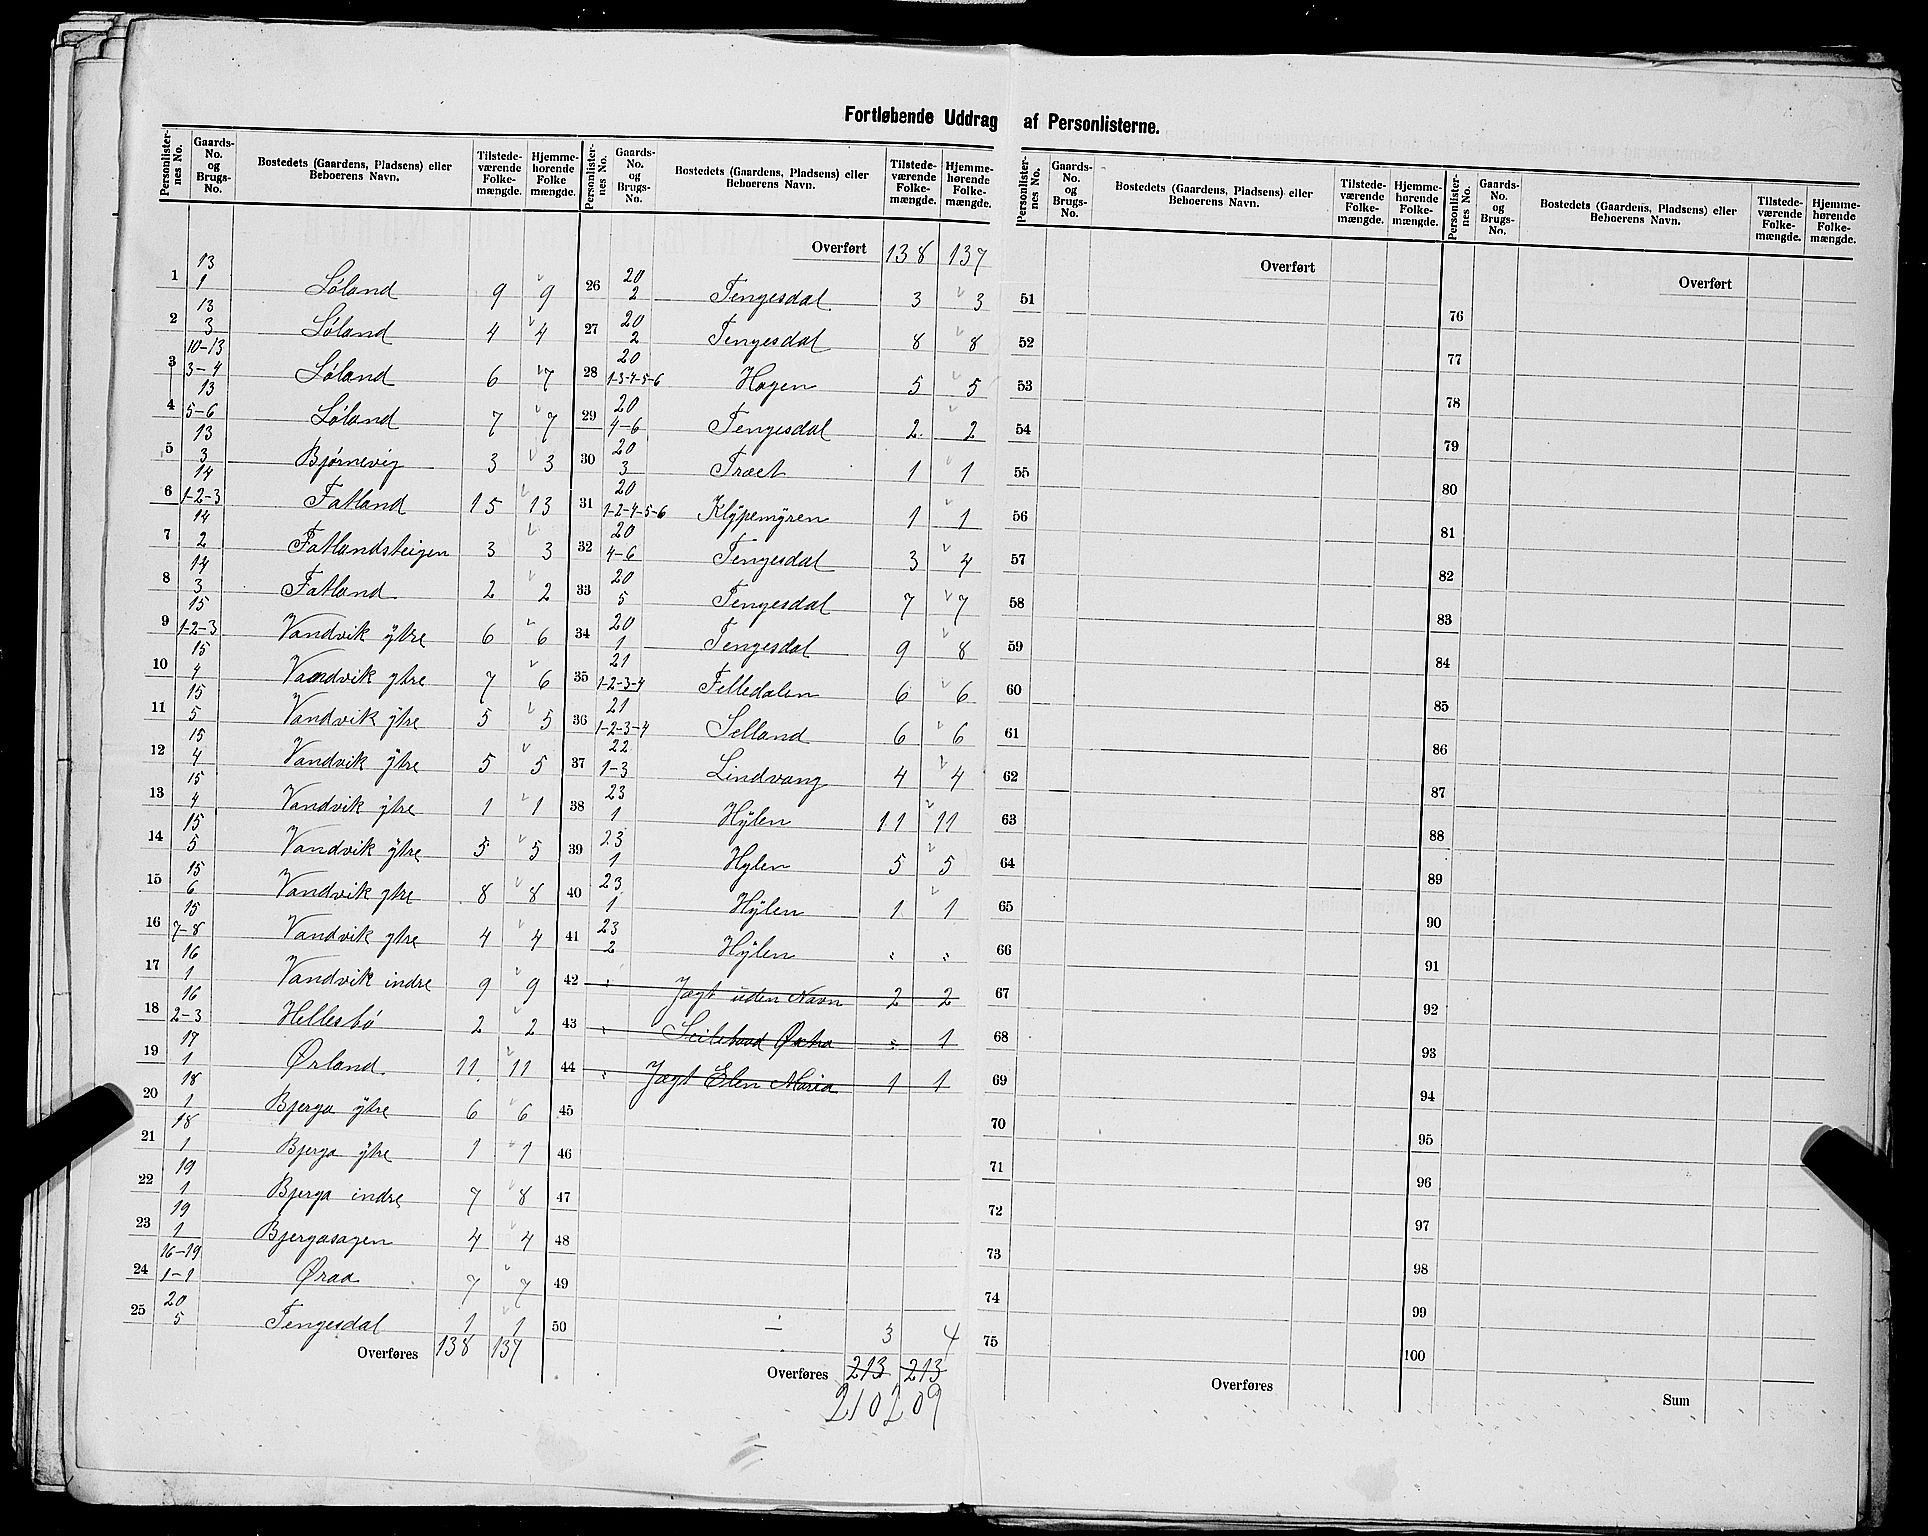 Fortløbende Uddrag af Personlisterne.
Personlisternes No. | Gaards-No. og Brugs-No. | Bostedets (Gaardens, Pladsens) eller Beboerens Navn. | Tilstedeværende Folkemængde. | Hjemmehørende Folkemængde.
1 | 13 1 | Løland | 9 | 9
2 | 13 3 | Løland | 4 | 4
3 | 10-13 3-4 | Løland | 6 | 7
4 | 13 5-6 | Løland | 7 | 7
5 | 13 3 | Bjørnevig | 3 | 3
6 | 14 1-2-3 | Fatland | 15 | 13
7 | 14 2 | Fatlandsteigen | 3 | 3
8 | 14 3 | Fatland | 2 | 2
9 | 15 1-2-3 | Vandvik ÿtre | 6 | 6
10 | 15 4 | Vandvik ytre | 7 | 6
11 | 15 5 | Vandvik ytre | 5 | 5
12 | 15 4 | Vandvik ÿtre | 5 | 5
13 | 15 4 | Vandvik ÿtre | 1 | 1
14 | 15 5 | Vandvik ÿtre | 5 | 5
15 | 15 6 | Vandvik ytre | 8 | 8
16 | 15 7-8 | Vandvik ytre | 4 | 4
17 | 16 1 | Vandvik indre | 9 | 9
18 | 16 2-3 | Hellesbø | 2 | 2
19 | 17 1 | Ørland | 11 | 11
20 | 18 1 | Bjerga ÿtre | 6 | 6
21 | 18 1 | Bjerga ÿtre | 1 | 1
22 | 19 1 | Bjerga indre | 7 | 8
23 | 19 1 | Bjergasagen | 4 | 4
24 | 16-19 1-1 | Øraa | 7 | 7
25 | 20 5 | Tengesdal | 1 | 1
Overføres 138 137
Personlisternes No. | Gaards-No. og Brugs-No. | Bostedets (Gaardens, Pladsens) eller Beboerens Navn. | Tilstedeværende Folkemængde. | Hjemmehørende Folkemængde.
Overført 138 137
26 | 20 2 | Tengesdal | 3 | 3
27 | 20 2 | Tengesdal | 8 | 8
28 | 20 1-3-4-5-6 | Hagen | 5 | 5
29 | 20 4-6 | Tengesdal | 2 | 2
30 | 20 3 | Træet | 1 | 1
31 | 20 1-2-4-5-6 | Klÿpemÿren | 1 | 1
32 | 20 4-6 | Tengesdal | 3 | 4
33 | 20 5 | Tengesdal | 7 | 7
34 | 20 1 | Tengesdal | 9 | 8
35 | 21 1-2-3-4 | Felledalen | 6 | 6
36 | 21 1-2-3-4 | Selland | 6 | 6
37 | 22 1-3 | Lindvang | 4 | 4
38 | 23 1 | Hÿlen | 11 | 11
39 | 23 1 | Hylen | 5 | 5
40 | 23 1 | Hÿlen | 1 | 1
41 | 23 2 | Hÿlen | „ | „
42 | „ | Jagt uden Navn | 2 | 2
43 | „ | Seilebaad | „ | 1
44 | „ | Jagt Elen Maria | 1 | 1
45
46
47
48
49
50 ÷ 3 4
Overføres 213 213
210 209
Personlisternes No. | Gaards-No. og Brugs-No. | Bostedets (Gaardens, Pladsens) eller Beboerens Navn. | Tilstedeværende Folkemængde. | Hjemmehørende Folkemængde.
Overført
51
52
53
54
55
56
57
58
59
60
61
62
63
64
65
66
67
68
69
70
71
72
73
74
75
Overføres
Personlisternes No. | Gaards-No. og Brugs-No. | Bostedets (Gaardens, Pladsens) eller Beboerens Navn. | Tilstedeværende Folkemængde. | Hjemmehørende Folkemængde.
Overført
76
77
78
79
80
81
82
83
84
85
86
87
88
89
90
91
92
93
94
95
96
97
98
99
100
Sum